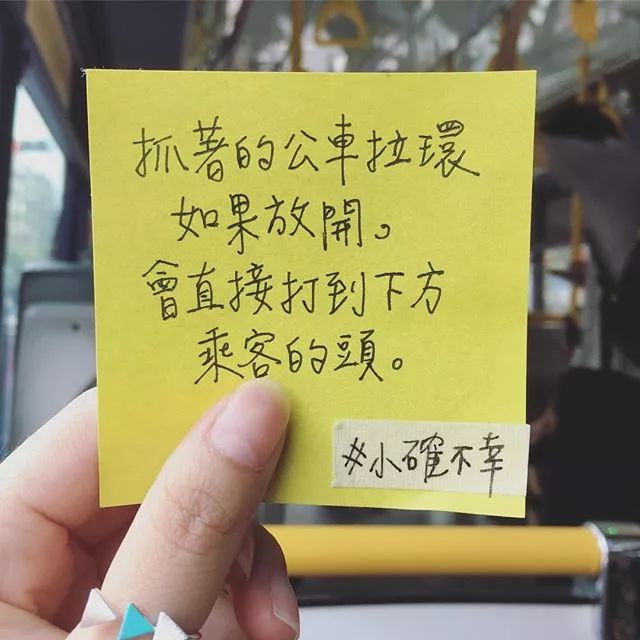 抓著的公車拉環
如果放開。
會直接打到下方
乘客的頭。
#小確不幸